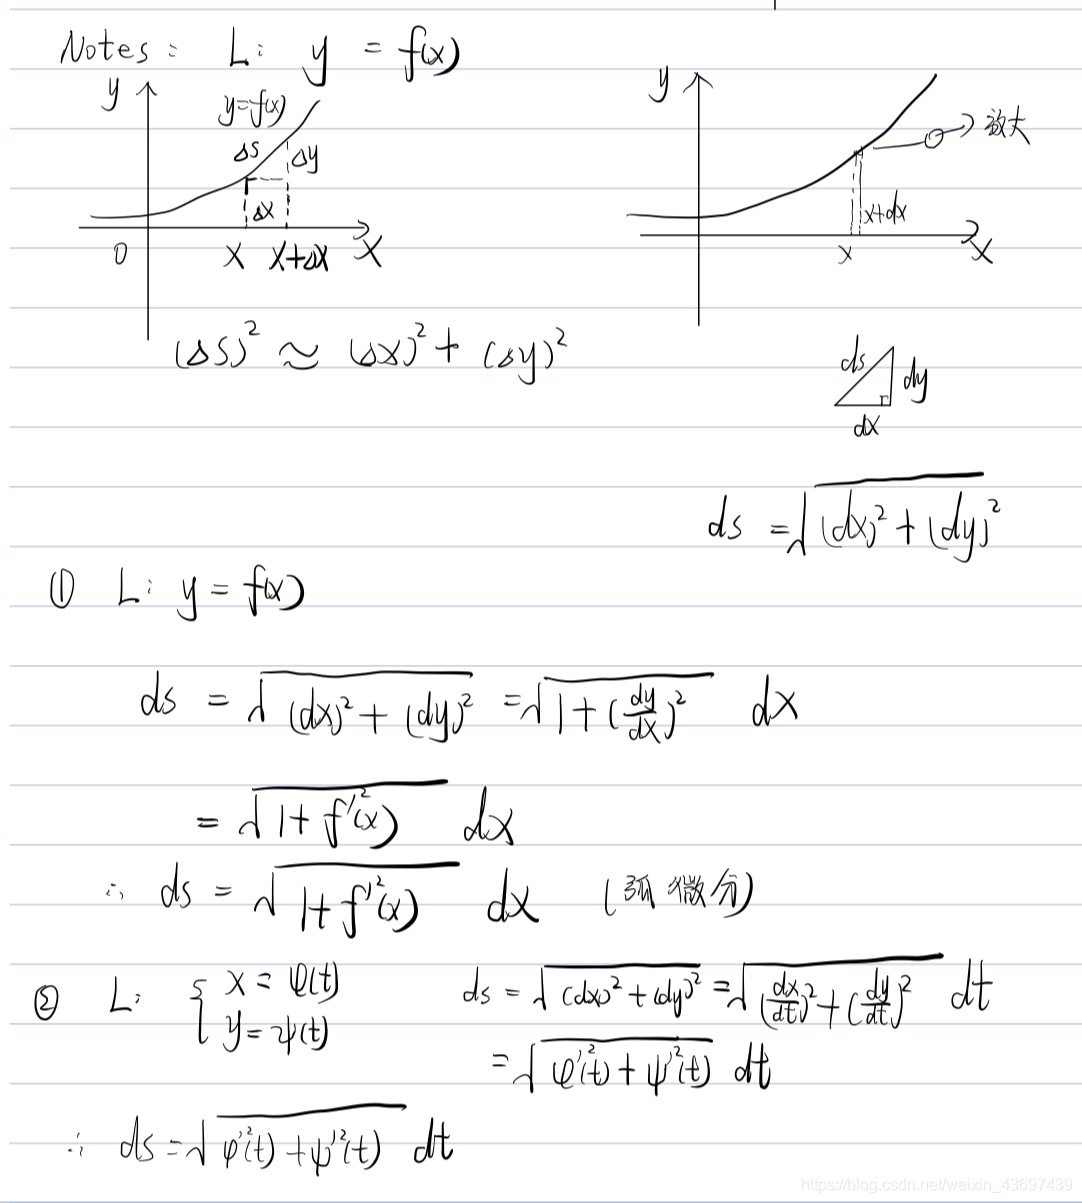 Notes: L: y = f(x)
y
y=f(x)
Δs
Δy
Δx
0
x
x+Δx
x
y
放大
x+dx
x
x
(Δs)² ≈ (Δx)² + (Δy)²
ds
dy
dx
ds = √(dx)² + (dy)²
① L: y = f(x)
ds = √(dx)² + (dy)² = √1+(dy/dx)² dx
= √1+f'²(x) dx
∴ ds = √1+f'²(x) dx (弧微分)
② L: { x = φ(t)
y = ψ(t)
ds = √(dx)² + (dy)² = √(dx/dt)² + (dy/dt)² dt
= √φ'²(t) + ψ'²(t) dt
∴ ds = √φ'²(t) + ψ'²(t) dt
https://blog.csdn.net/weixin_43697439